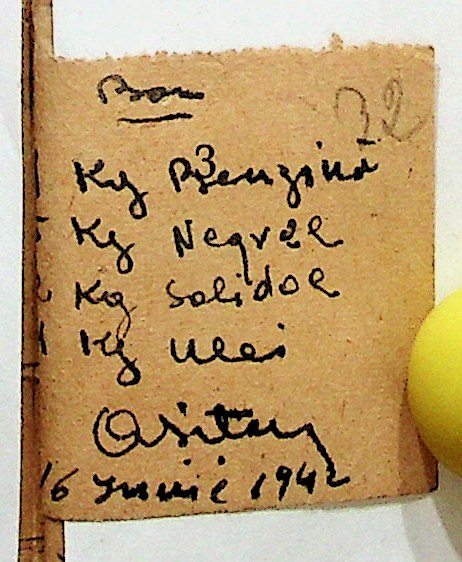 Bon
32
Kg Benzină
Kg Negvol
Kg Solidol
Kg Ulei
16 Iunie 1942